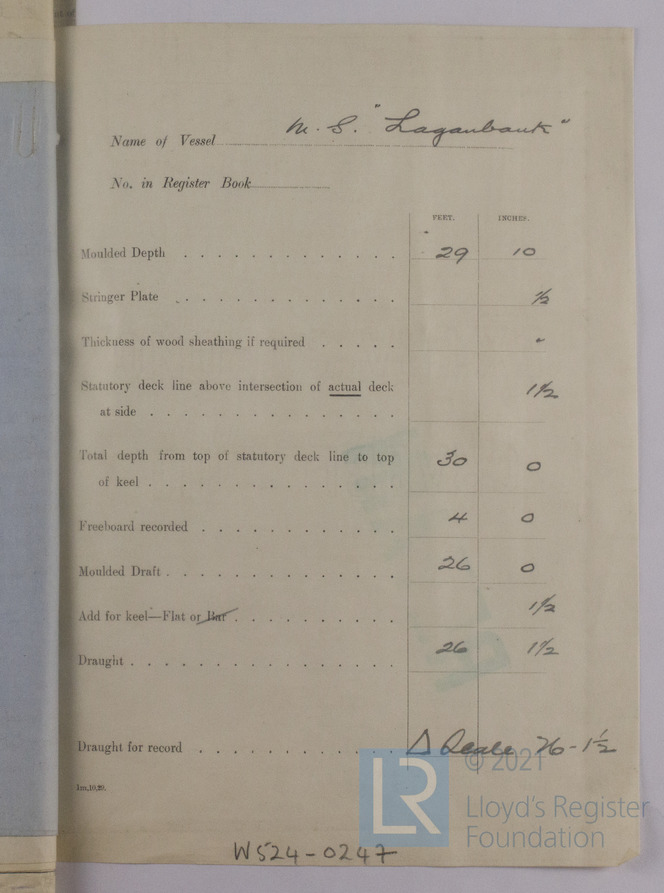 Name of Vessel M.S. "Laganbank"
No. in Register Book
FEET. INCHES.
Moulded Depth 29 10
Stringer Plate ½
Thickness of wood sheathing if required "
Statutory deck line above intersection of actual deck
at side 1½
Total depth from top of statutory deck line to top
of keel 30 0
Freeboard recorded 4 0
Moulded Draft 26 0
Add for keel—Flat or Bar 1½
Draught 26 1½
Draught for record Δ Scale 26-1½
1m,10,29.
© 2021
LR Lloyd's Register
Foundation
W524-0247